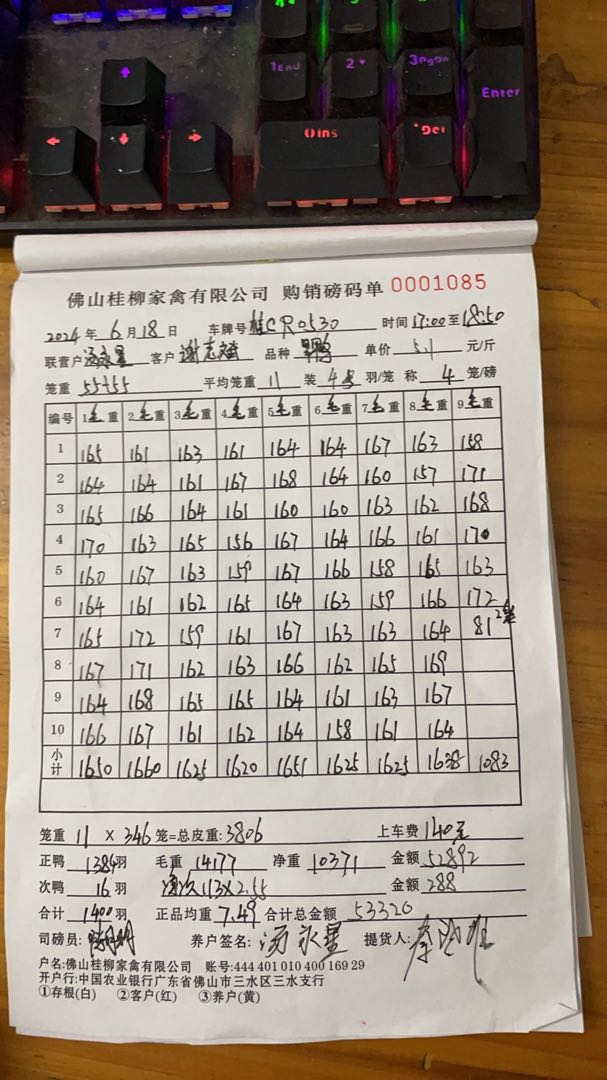 1End
2
3PgDn
Enter
0Ins
Del
佛山桂柳家禽有限公司 购销磅码单 0001085
2024年6月18日 车牌号桂CR0530 时间17:00至18:50
联营户汤永星 客户谢志斌 品种 单价5.1元/斤
笼重55÷55 平均笼重11 装4 羽/笼 称4笼/磅
编号 1毛重 2毛重 3毛重 4毛重 5毛重 6毛重 7毛重 8毛重 9毛重
1 165 161 163 161 164 164 167 163 158
2 164 164 161 167 168 164 160 157 171
3 165 166 164 161 160 160 163 162 168
4 170 163 165 156 167 164 166 161 170
5 160 167 163 159 167 166 158 165 163
6 164 161 162 165 164 163 159 166 172
7 165 172 159 161 167 163 163 164 81 2笼
8 167 171 162 163 166 162 165 169
9 164 168 165 165 164 161 163 167
10 166 167 161 162 164 158 161 164
小计 1650 1660 1625 1620 1651 1625 1625 1638 1083
笼重11×346笼=总皮重:3806 上车费140元
正鸭1384羽 毛重14177 净重10371 金额52892
次鸭16羽 113×2.55 金额288
合计1400羽 正品均重7.49 合计总金额53320
司磅员: 养户签名:汤永星 提货人:
户名:佛山桂柳家禽有限公司 账号:444 401 010 400 169 29
开户行:中国农业银行广东省佛山市三水区三水支行
①存根(白) ②客户(红) ③养户(黄)